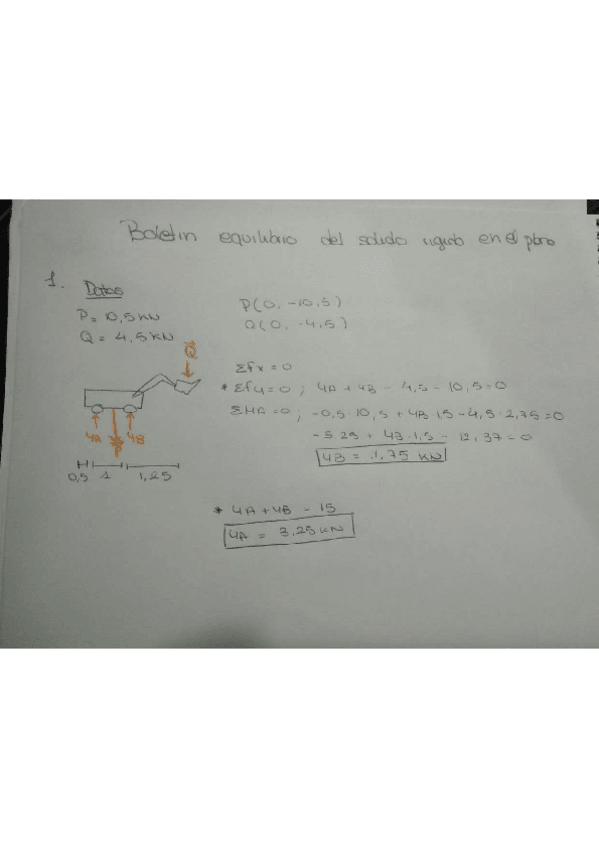 Boletín equilibrio del solido rígido en el plano
1. Datos
P = 10,5 KN
Q = 4,5 KN
P(0, -10,5)
Q(0, -4,5)
Q
YA
P
YB
0,5 1 1,25
Σfx = 0
* Σfy = 0 ; YA + YB - 4,5 - 10,5 = 0
ΣMA = 0 ; -0,5 · 10,5 + YB · 1,5 - 4,5 · 2,75 = 0
-5,25 + YB · 1,5 - 12,37 = 0
YB = 11,75 KN
* YA + YB - 15
YA = 3,25 KN